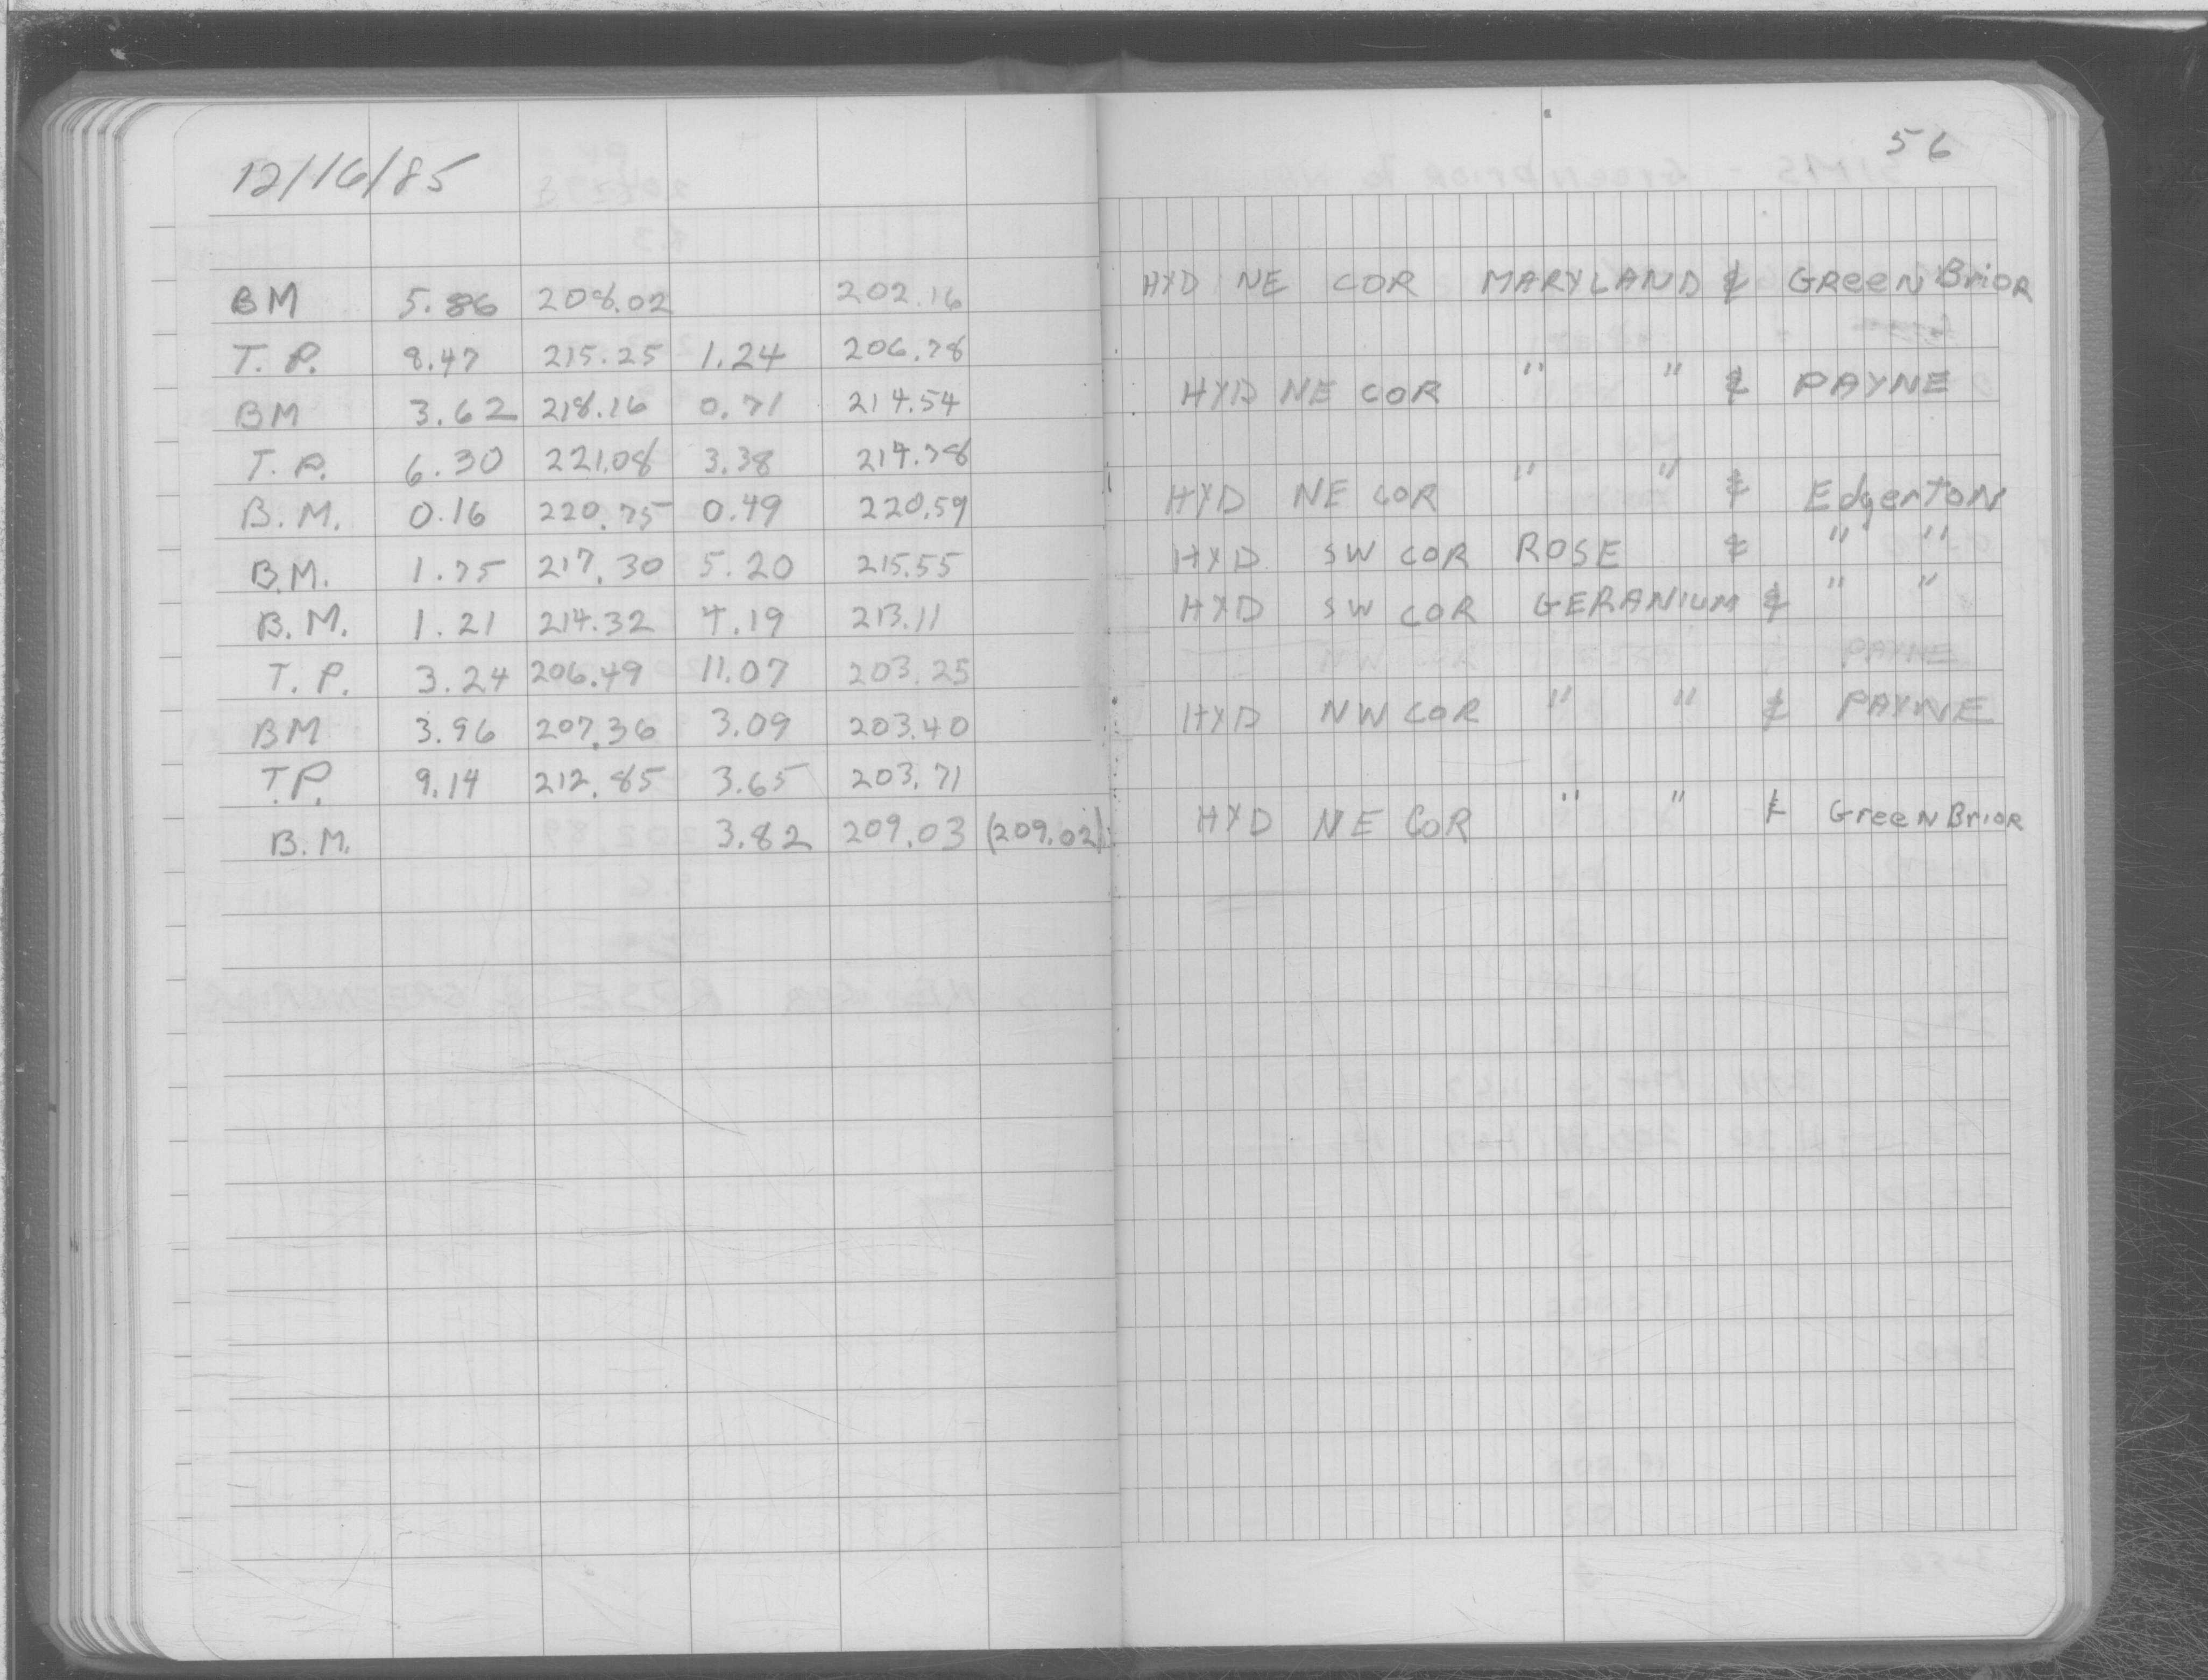 12/16/85
56
BM 5.86 208.02 202.16 HYD NE COR MARYLAND & GReeNBrioR
T.P. 8.47 215.25 1.24 206.78
BM 3.62 218.16 0.71 214.54 HYD NE COR " " & PAYNE
T.P. 6.30 221.08 3.38 214.78
B.M. 0.16 220.75 0.49 220.59 HYD NE COR " " & EdgerToN
B.M. 1.75 217.30 5.20 215.55 HYD SW COR ROSE & " "
B.M. 1.21 214.32 4.19 213.11 HYD SW COR GERANIUM & " "
T.P. 3.24 206.49 11.07 203.25
BM 3.96 207.36 3.09 203.40 HYD NW COR " " & PAYNE
T.P. 9.14 212.85 3.65 203.71
B.M. 3.82 209.03 (209.02) HYD NE COR " " & GreeNBrioR